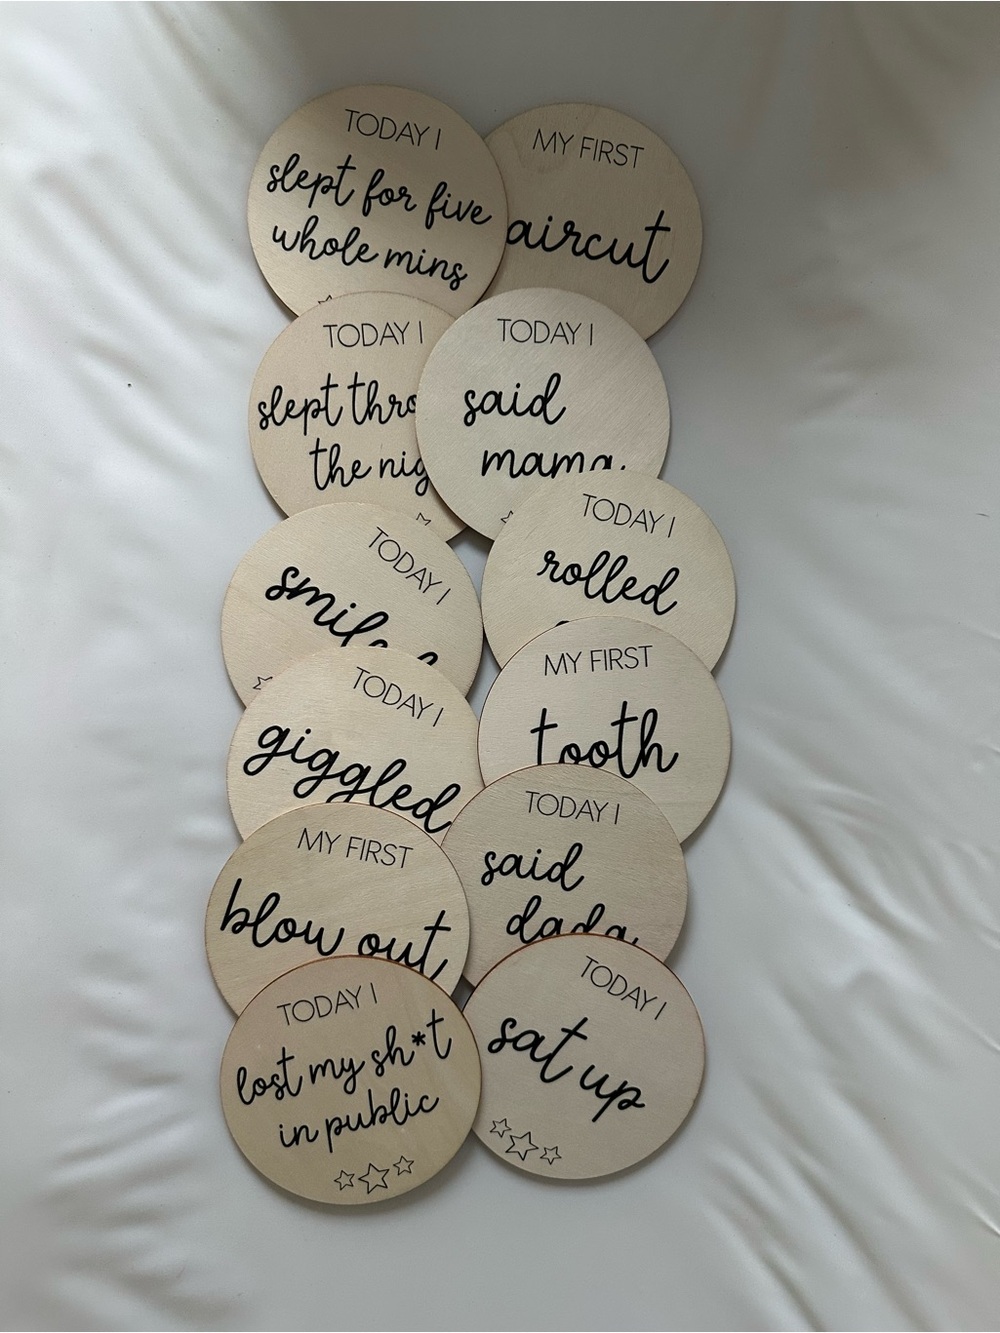 TODAY I
slept for five
whole mins
MY FIRST
aircut
TODAY I
slept thro
the nig
TODAY I
said
mama
TODAY I
TODAY I
rolled
TODAY I
giggled
MY FIRST
tooth
MY FIRST
blow out
TODAY I
said
dada
TODAY I
lost my sh*t
in public
TODAY I
sat up